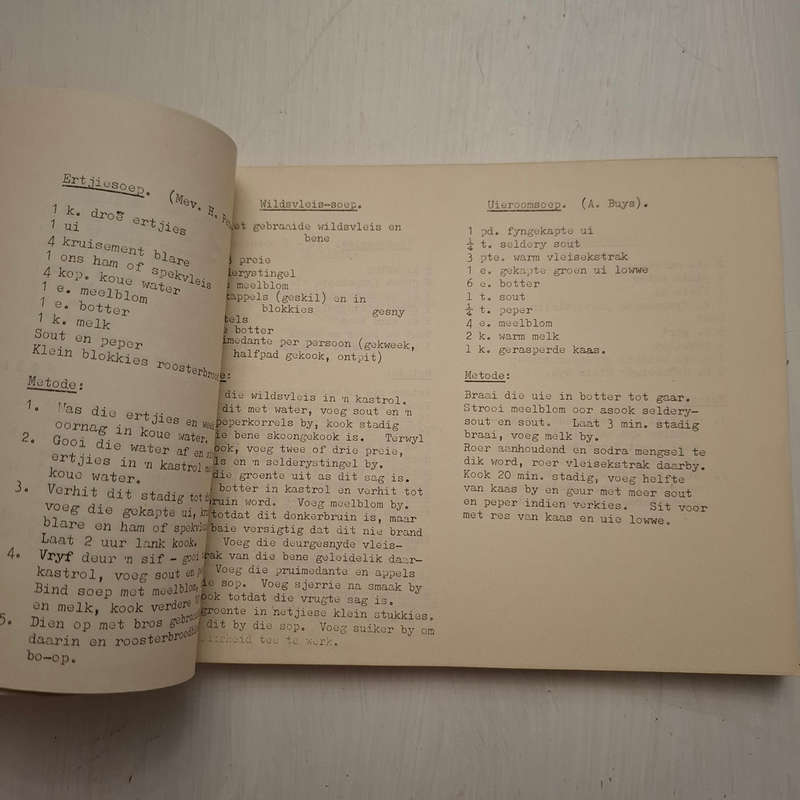 Ertjiesoep. (Mev. H.
1 k. droë ertjies
1 ui
4 kruisement blare
1 ons ham of spekvleis
4 kop. koue water
1 e. meelblom
1 e. botter
1 k. melk
Sout en peper
Klein blokkies roosterbrood
Metode:
1. Was die ertjies en
oornag in koue water.
2. Gooi die water af en
ertjies in 'n kastrol
koue water.
3. Verhit dit stadig tot
voeg die gekapte ui,
blare en ham of spekvleis
Laat 2 uur lank kook.
4. Vryf deur 'n sif - gooi
kastrol, voeg sout en
Bind soep met meelblom,
en melk, kook verdere
5. Dien op met bros
daarin en
bo-op.
Wildsvleis-soep.
et gebraaide wildsvleis en
bene
preie
meelblom
tappels (geskil) en in
blokkies gesny
botter
per persoon (gekweek,
halfpad gekook, ontpit)
die wildsvleis in 'n kastrol.
dit met water, voeg sout en 'n
peperkorrels by, kook stadig
bene skoongekook is. Terwyl
kook, voeg twee of drie preie,
en 'n selderystingel by.
die groente uit as dit sag is.
botter in kastrol en verhit tot
bruin word. Voeg meelblom by.
totdat dit donkerbruin is, maar
baie versigtig dat dit nie brand
Voeg die deurgesnyde vleis-
van die bene geleidelik daar-
Voeg die pruimedante en appels
sop. Voeg sjerrie na smaak by
ook totdat die vrugte sag is.
groente in netjiese klein stukkies.
dit by die sop. Voeg suiker by om
tee te werk.
Uieroomsoep. (A. Buys).
1 pd. fyngekapte ui
¼ t. seldery sout
3 pte. warm vleisekstrak
1 e. gekapte groen ui lowwe
6 e. botter
1 t. sout
¼ t. peper
4 e. meelblom
2 k. warm melk
1 k. gerasperde kaas.
Metode:
Braai die uie in botter tot gaar.
Strooi meelblom oor asook seldery-
sout en sout. Laat 3 min. stadig
braai, voeg melk by.
Roer aanhoudend en sodra mengsel te
dik word, roer vleisekstrak daarby.
Kook 20 min. stadig, voeg helfte
van kaas by en geur met meer sout
en peper indien verkies. Sit voor
met res van kaas en uie lowwe.